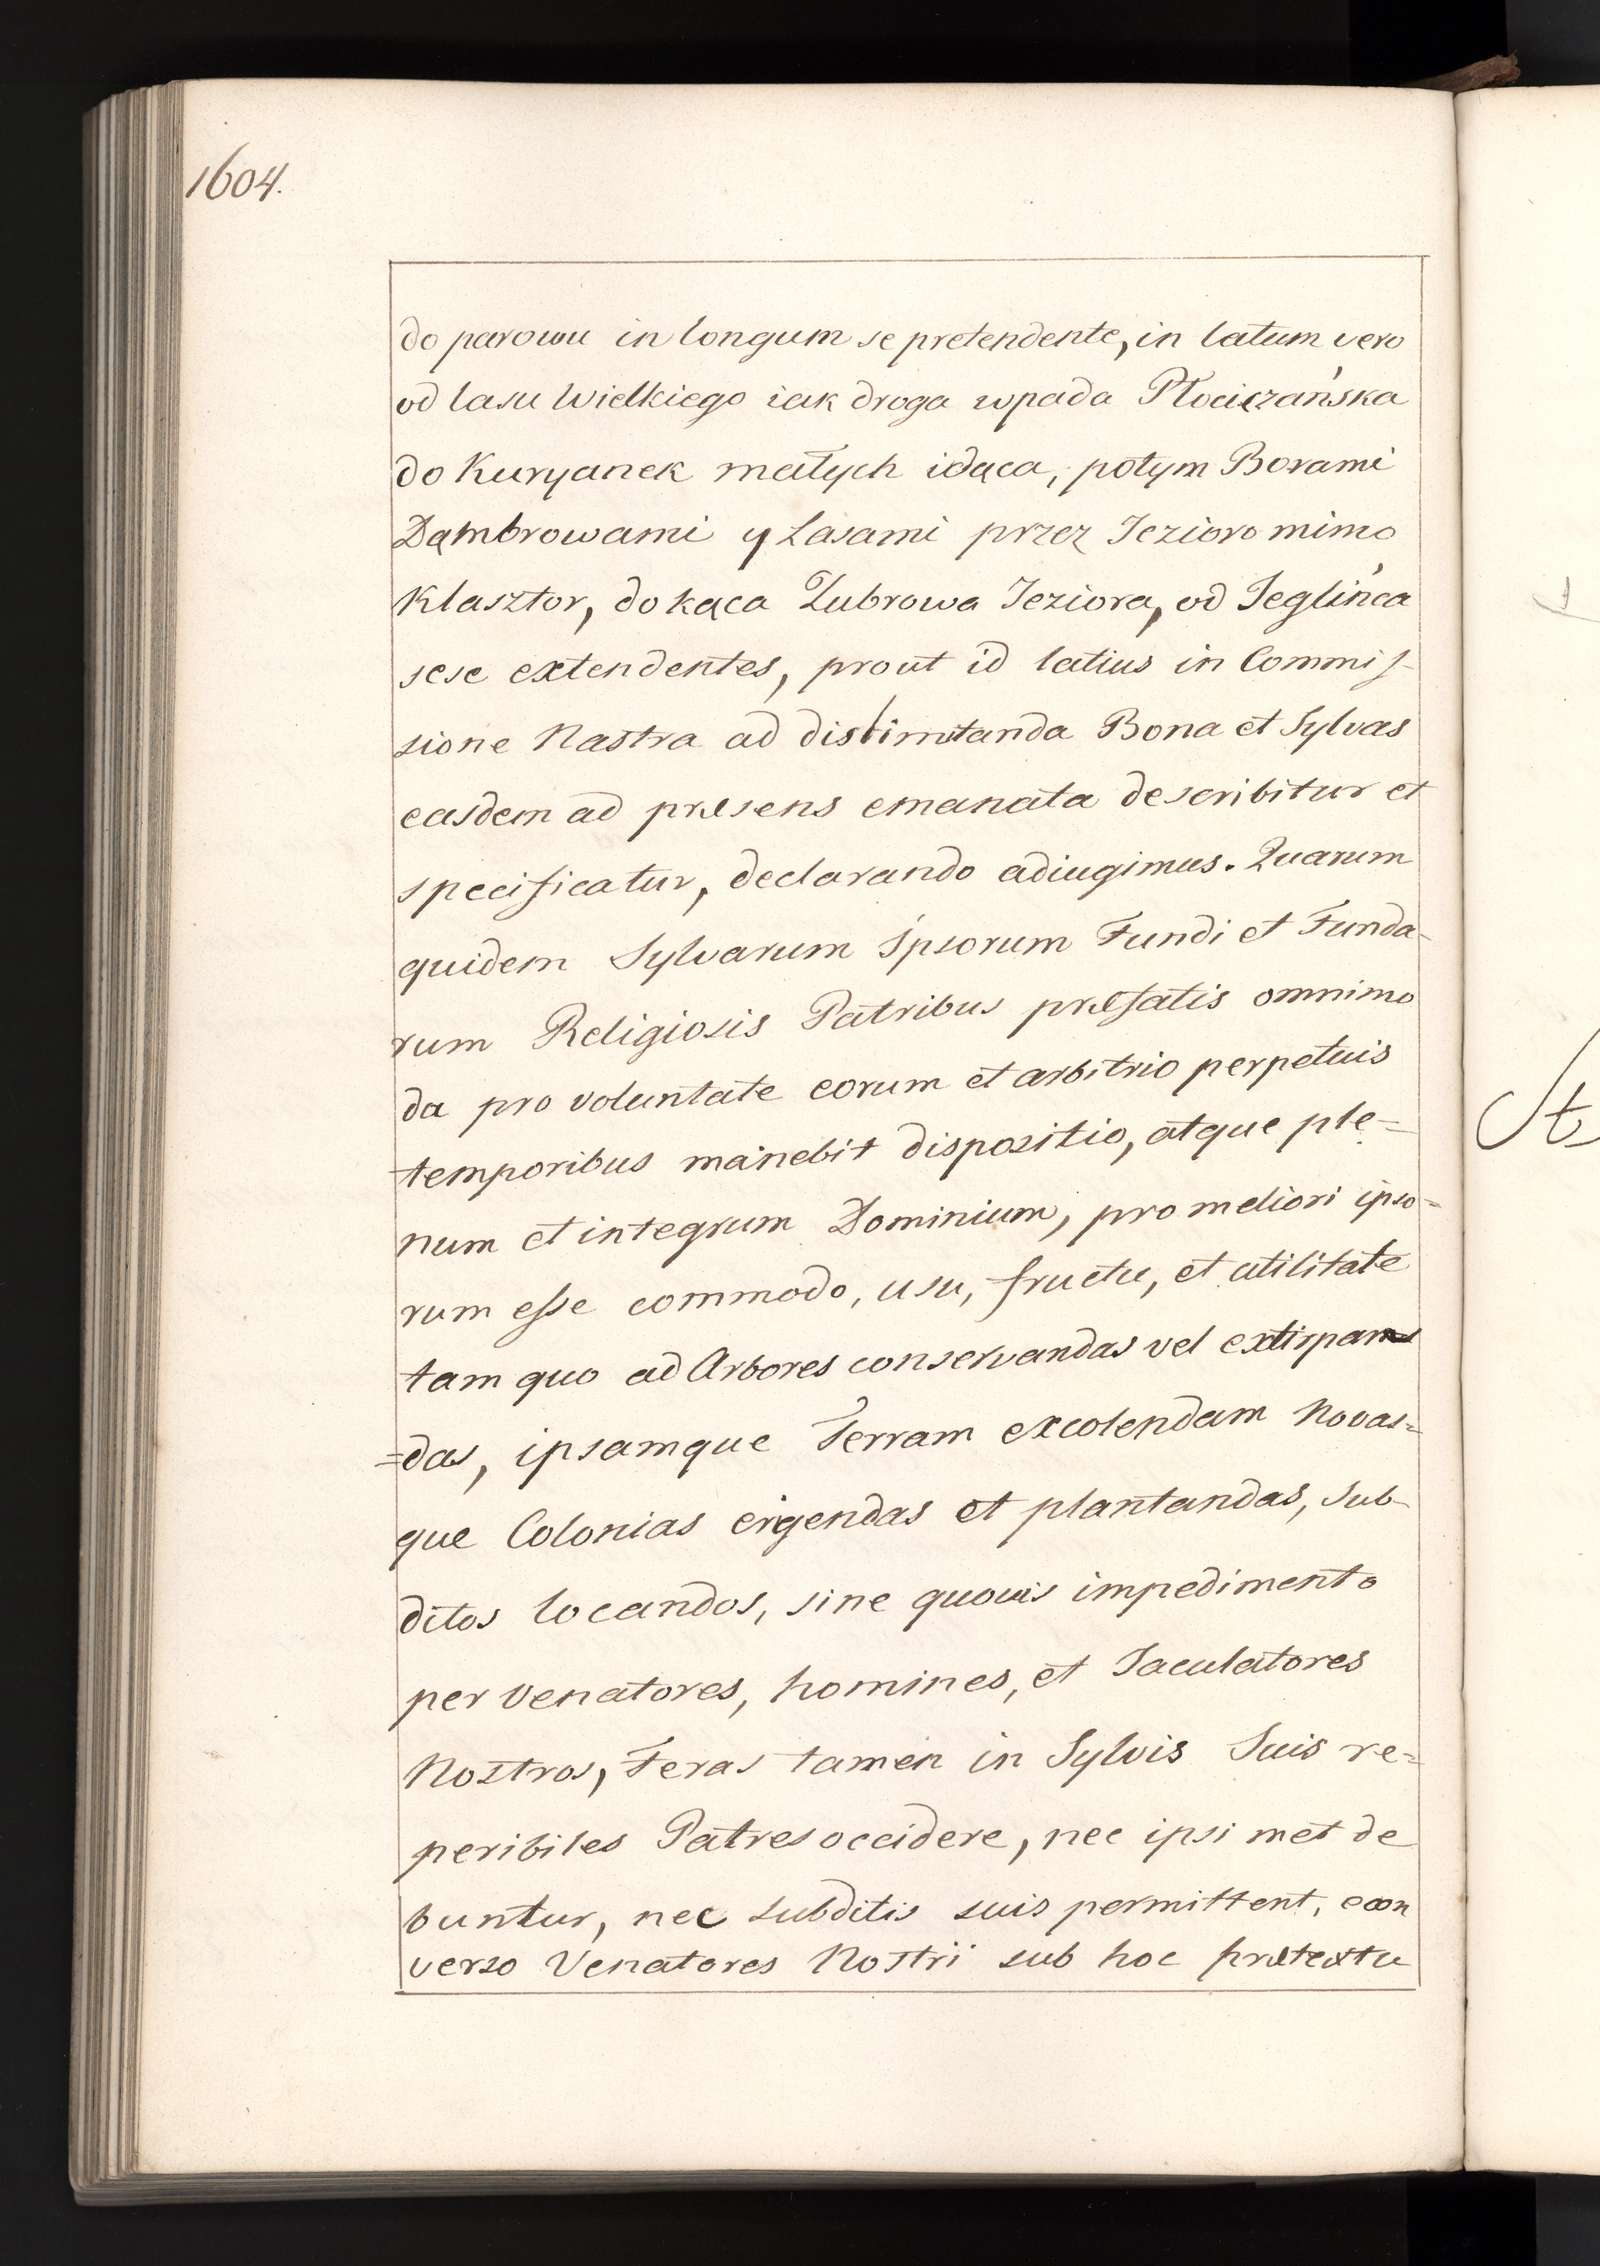 1604.
do parowu in longum se pretendente, in latum vero
od lasu Wielkiego iak droga wpada Płociczańska
do Kuryanek małych idąca, potym Borami
Dąmbrowami y Lasami przez Iezioro mimo
Klasztor, do kąca Zubrowa Ieziora, od Ieglińca
sese extendentes, prout id latius in Commis-
sione Nastra ad dislimitanda Bona et Sylvas
easdem ad præsens emanata describitur et
specificatur, declarando adiugimus. Quarum
quidem Sylvarum Ipsorum Fundi et Funda-
rum Religiosis Patribus præfatis omnimo
da pro voluntate eorum et arbitrio perpetuis
temporibus manebit dispositio, atque ple=
num et integrum Dominium, pro meliori ipso=
rum esse commodo, usu, fructu, et utilitate
tam quo ad Arbores conservandas vel extirpan
=das, ipsamque Terram excolendam Novas=
que Colonias erigendas et plantandas, sub-
ditos locandos, sine quovis impedimento
per Venatores, homines, et Iaculatores
Nostros, Feras tamen in Sylvis Suis re=
peribiles Patres occidere, nec ipsi met de
buntur, nec subditis suis permittent, econ
verso Venatores Nostrii sub hoc prætextu